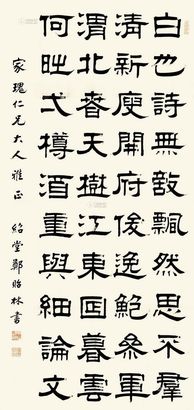 白也詩無敵飄然思不羣
清新庾開府俊逸鮑參軍
渭北春天樹江東日暮雲
何時一樽酒重與細論文
家瑰仁兄大人雅正 紹堂鄭貽林書